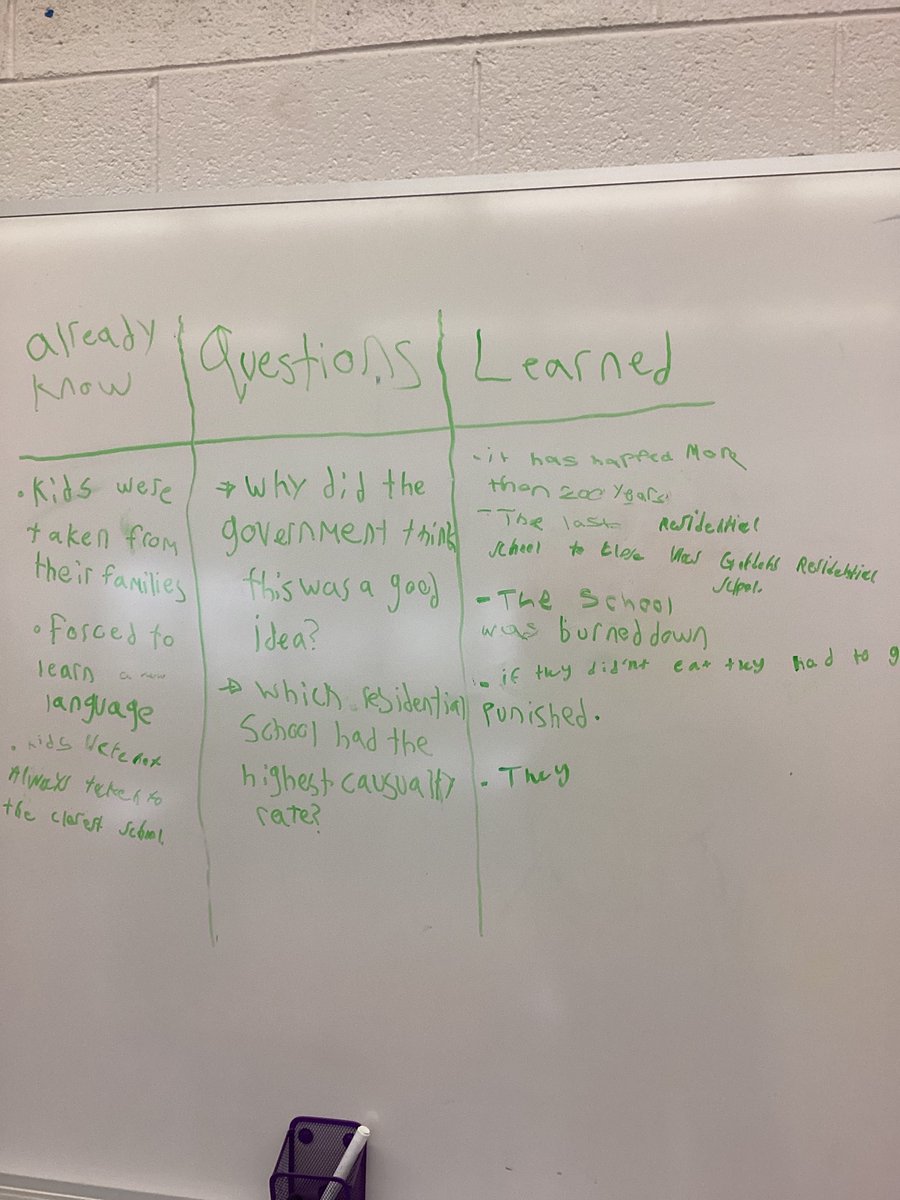 already
know
• Kids were
taken from
their families
• Forced to
learn a new
language
• Kids were not
Always taken to
the closest school.
Questions
→ Why did the
government think
this was a good
idea?
→ which residential
School had the
highest causualty
rate?
Learned
- it has happed More
then 200 years.
- The last Residential
school to close was Residential
School.
- The School
was burned down
- if they did'nt eat they had to g
punished.
- They